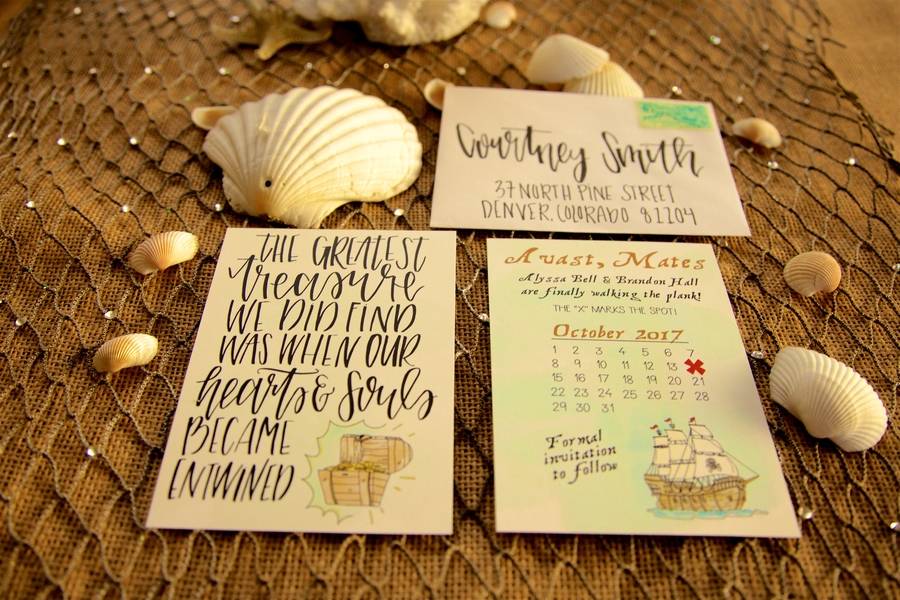 Courtney Smith
37 NORTH PINE STREET
DENVER, COLORADO 81204
THE GREATEST
treasure
WE DID FIND
WAS WHEN OUR
hearts & Souls
BECAME
ENTWINED
Avast, Mates
Alyssa Bell & Brandon Hall
are finally walking the plank!
THE "X" MARKS THE SPOT!
October 2017
1 2 3 4 5 6 7
8 9 10 11 12 13
15 16 17 18 19 20 21
22 23 24 25 26 27 28
29 30 31
Formal
invitation
to follow